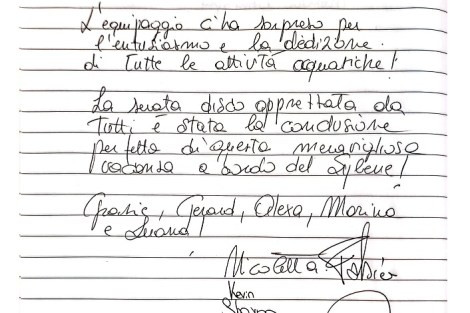 L'equipaggio c'ha sorpreso per
l'entusiasmo e la dedizione
di Tutte le attività acquatiche!
La serata disco apprettata da
Tutti è stata la conclusione
perfetta di questa meravigliosa
vacanza a bordo del
Grazie, Gerard, Alexa, Marina
e
Nicoletta Fabier
Kevin